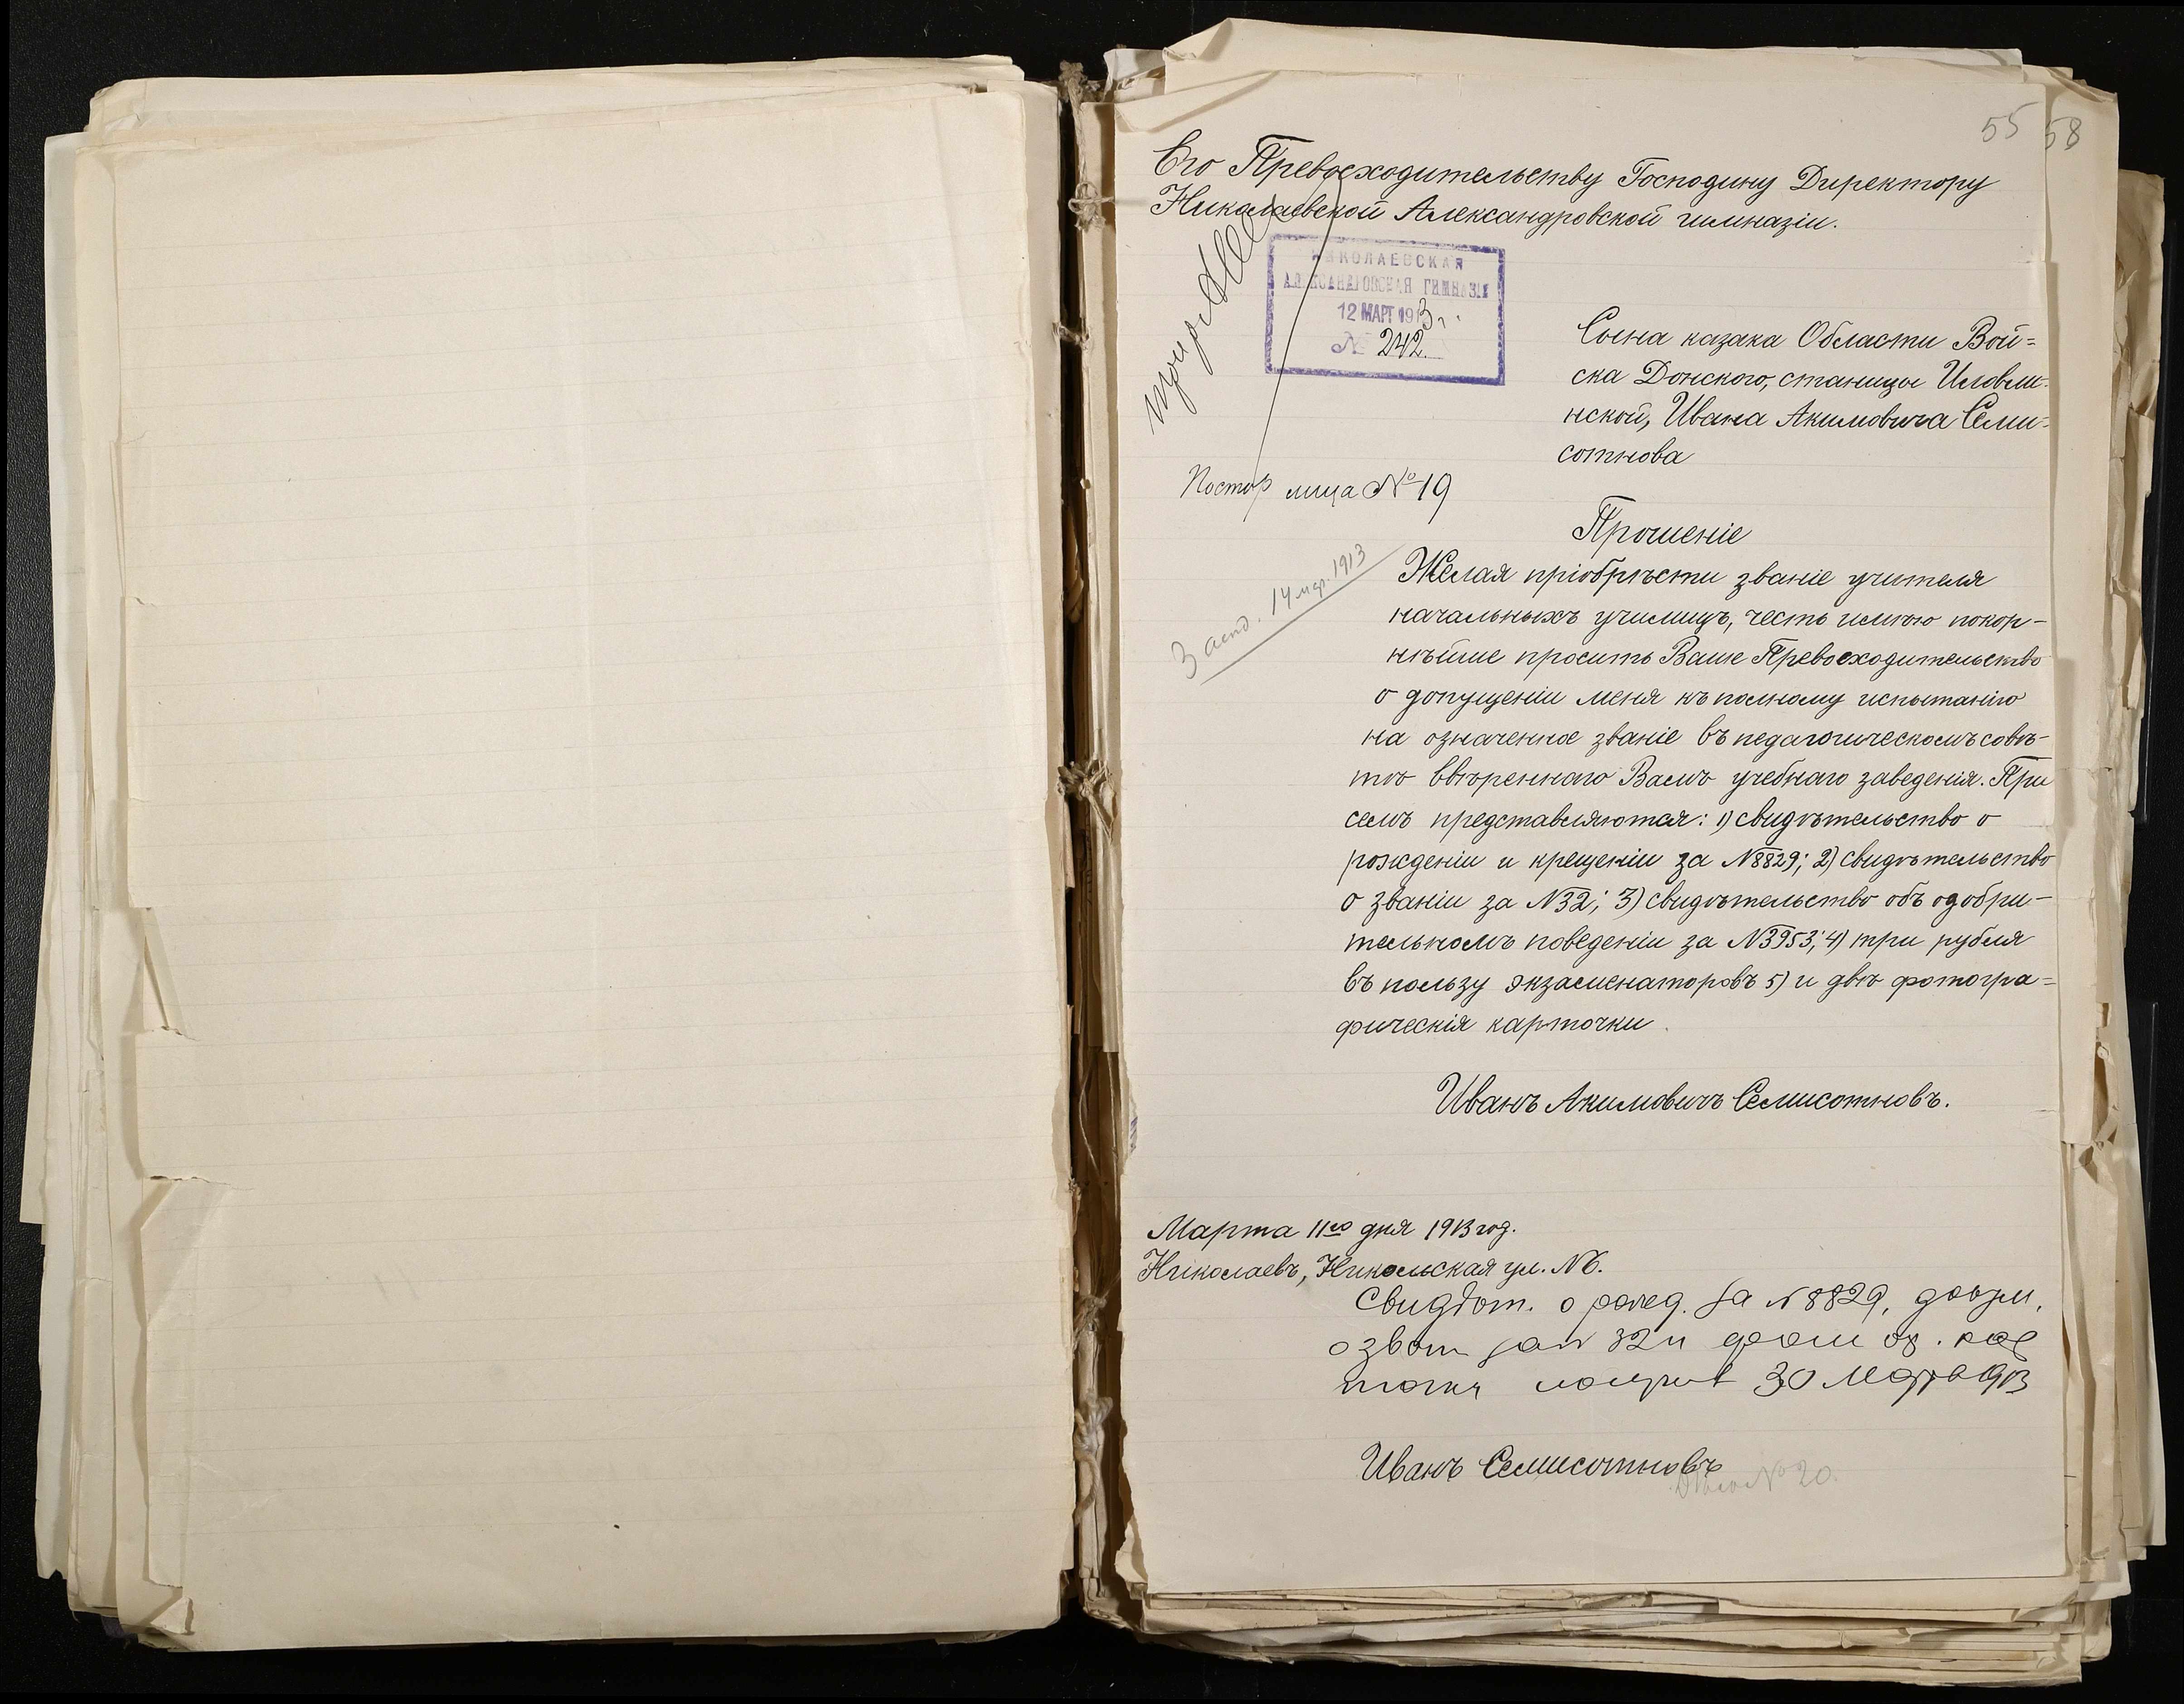 55 58
Его Превосходительству Господину Директору
Николаевской Александровской гимназіи.
НИКОЛАЕВСКАЯ
АЛЕКСАНДРОВСКАЯ ГИМНАЗІЯ
12 МАРТ 1913 г.
№ 242
Сына казака Области Вой=
ска Донского, станицы Иловли-
нской, Ивана Акимовича Семи-
сотнова
Постор лица № 19
Прошеніе
14 мар. 1913
Желая пріобрѣсти званіе учителя
начальныхъ училищъ, честь имѣю покор-
нѣйше просить Ваше Превосходительство
о допущеніи меня къ полному испытанію
на означенное званіе въ педагогическомъ совѣ-
тѣ ввѣреннаго Вамъ учебнаго заведенія. При
семъ представляются: 1) свидѣтельство о
рожденіи и крещеніи за №8829; 2) свидѣтельство
о званіи за №32; 3) свидѣтельство объ одобри-
тельномъ поведеніи за №3953; 4) три рубля
въ пользу экзаменаторовъ 5) и двѣ фотогра=
фическія карточки.
Иванъ Акимовичъ Семисотновъ.
Марта 11го дня 1913 год.
Николаевъ, Никольская ул. №6.
Свидѣт. о рожд. за №8829,
о зван за № 32 и
30 Марта 1913
Иванъ Семисотновъ
№ 20.